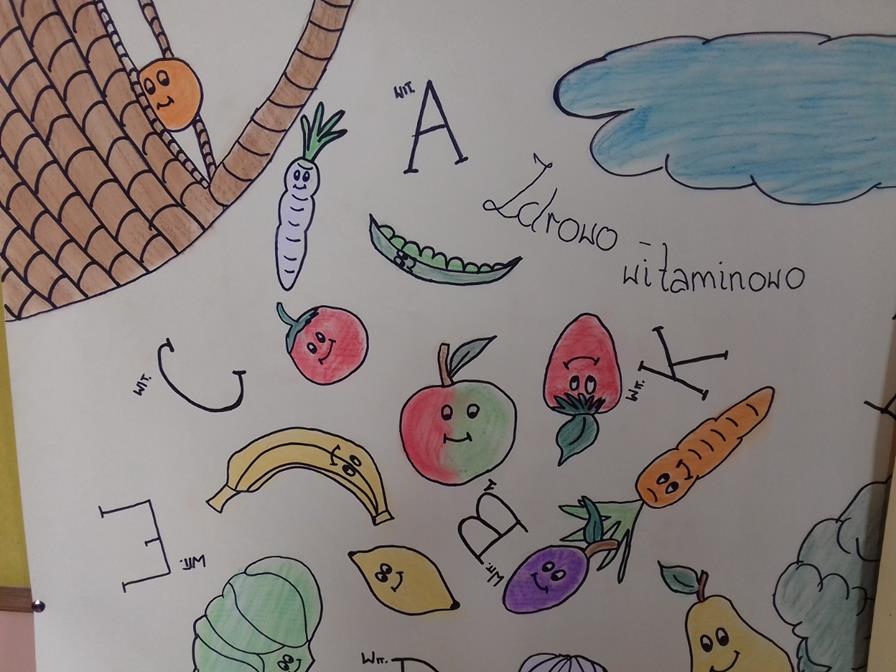 WIT. A
Zdrowo -
witaminowo
WIT. C
WIT. K
WIT. B
WIT. E
WIT.